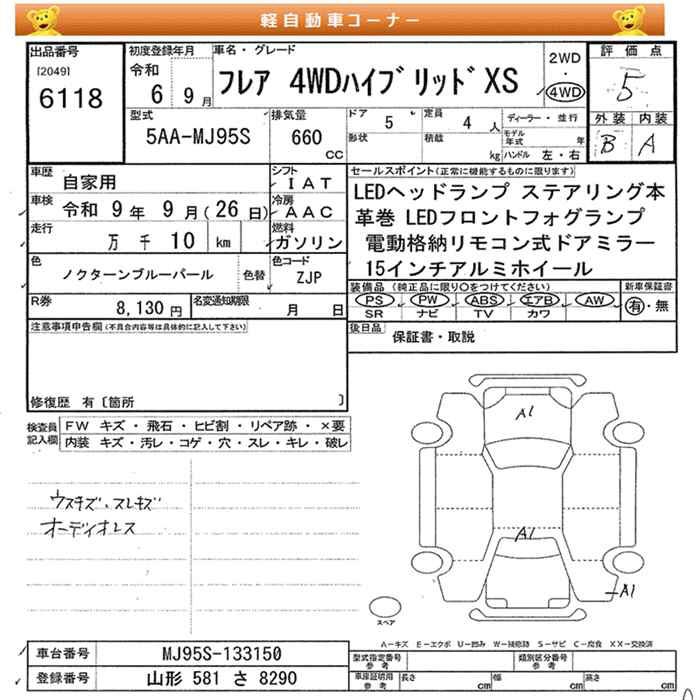 軽自動車コーナー
出品番号
[2049]
6118
初度登録年月
令和
6 9月
車名・グレード
フレア 4WDハイブリッドXS
2WD
・
4WD
評価点
5
外装 内装
B A
型式
5AA-MJ95S
排気量
660
cc
ドア
5
定員
4 人
形状
積載
kg
ディーラー・並行
モデル年式 年
ハンドル 左・右
車歴
自家用
シフト
IAT
車検
令和 9年 9月(26日)
冷房
AAC
走行
万 千 10 km
燃料
ガソリン
色
ノクターンブルーパール
色替
色コード
ZJP
R券
8,130円
名変通知期限
月 日
セールスポイント(正常に機能するものに限ります)
LEDヘッドランプ ステアリング本
革巻 LEDフロントフォグランプ
電動格納リモコン式ドアミラー
15インチアルミホイール
装備品 (純正品に限り○をつけてください)
PS PW ABS エアB AW
SR ナビ TV カワ
新車保証書
有・無
後日品
保証書・取説
注意事項申告欄(不具合内容等は具体的に記入して下さい)
修復歴 有〔箇所 〕
検査員
記入欄
FW キズ・飛石・ヒビ割・リペア跡・×要
内装 キズ・汚レ・コゲ・穴・スレ・キレ・破レ
ウスキズ・スレキズ
オーディオレス
A1
A1
A1
スペア
A-キズ E-エクボ U-凹み W-補修跡 S-サビ C-腐食 XX-交換済
車台番号
MJ95S-133150
登録番号
山形 581 さ 8290
型式指定番号
参考
類別区分番号
参考
車庫証明用
参考
長さ cm
幅 cm
高さ cm